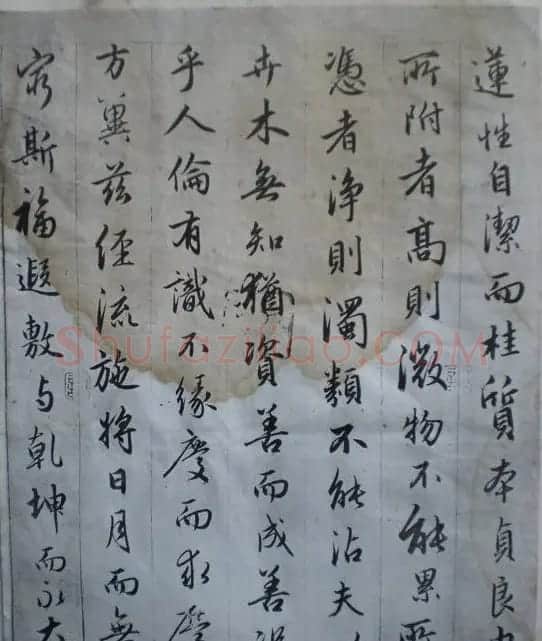 蓮性自潔而桂質本貞良
所附者髙則微物不能累所
憑者淨則濁類不能沾夫
卉木無知猶資善而成善
乎人倫有識不緣慶而求慶
方冀茲經流施將日月而無
窮斯福遐敷与乾坤而永大
Shufaziliao.COM